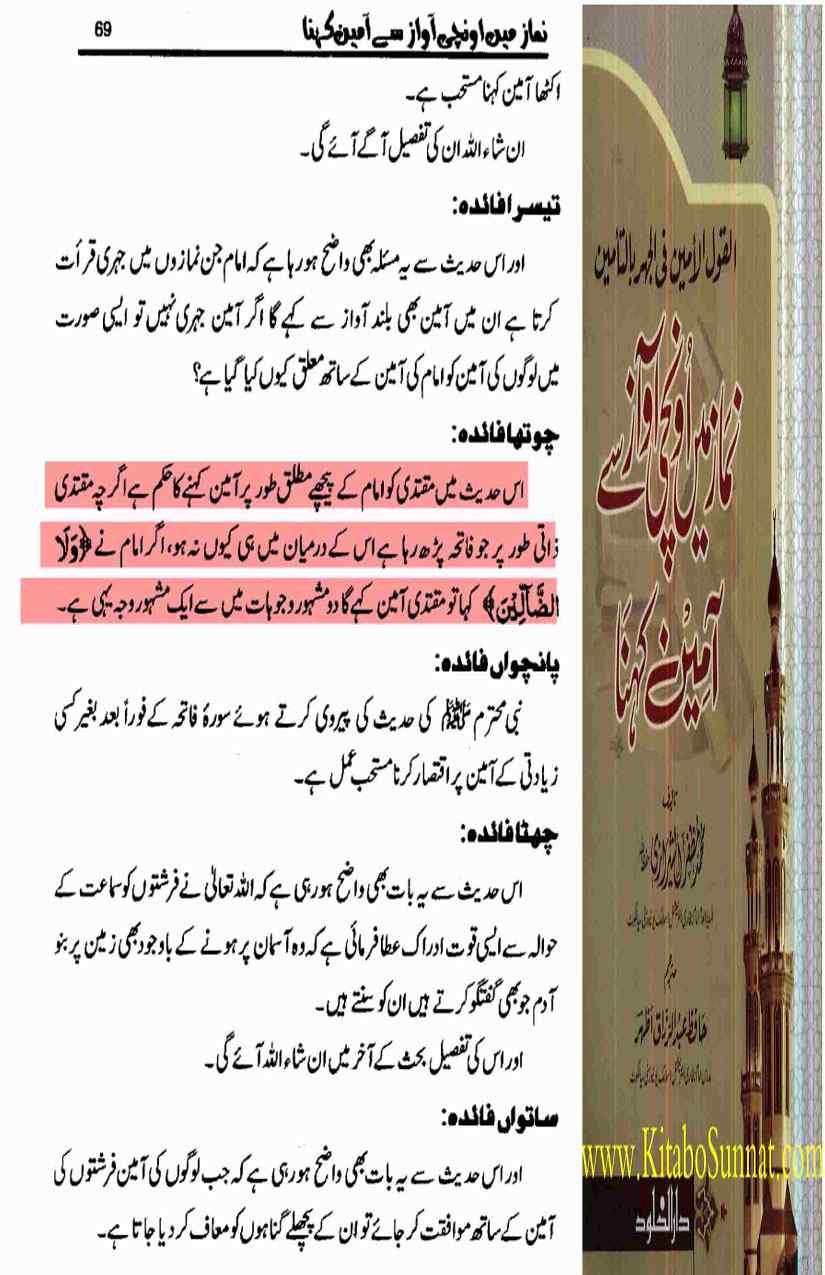 نماز میں اونچی آواز سے آمین کہنا 69
اکٹھا آمین کہنا مستحب ہے۔
ان شاء اللہ ان کی تفصیل آگے آئے گی۔
تیسرا فائدہ:
اور اس حدیث سے یہ مسئلہ بھی واضح ہو رہا ہے کہ امام جن نمازوں میں جہری قرأت
کرتا ہے ان میں آمین بھی بلند آواز سے کہے گا اگر آمین جہری نہیں تو ایسی صورت
میں لوگوں کی آمین کو امام کی آمین کے ساتھ معلق کیوں کیا گیا ہے؟
چوتھا فائدہ:
اس حدیث میں مقتدی کو امام کے پیچھے مطلق طور پر آمین کہنے کا حکم ہے اگرچہ مقتدی
ذاتی طور پر جو فاتحہ پڑھ رہا ہے اس کے درمیان میں ہی کیوں نہ ہو، اگر امام نے ﴿وَلَا
الضَّآلِّيْنَ﴾ کہا تو مقتدی آمین کہے گا دو مشہور وجوہات میں سے ایک مشہور وجہ یہی ہے۔
پانچواں فائدہ:
نبی محترم ﷺ کی حدیث کی پیروی کرتے ہوئے سورۂ فاتحہ کے فوراً بعد بغیر کسی
زیادتی کے آمین پر اقتصار کرنا مستحب عمل ہے۔
چھٹا فائدہ:
اس حدیث سے یہ بات بھی واضح ہو رہی ہے کہ اللہ تعالیٰ نے فرشتوں کو سماعت کے
حوالہ سے ایسی قوت ادراک عطا فرمائی ہے کہ وہ آسمان پر ہونے کے باوجود بھی زمین پر بنو
آدم جو بھی گفتگو کرتے ہیں ان کو سنتے ہیں۔
اور اس کی تفصیل بحث کے آخر میں ان شاء اللہ آئے گی۔
ساتواں فائدہ:
اور اس حدیث سے یہ بات بھی واضح ہو رہی ہے کہ جب لوگوں کی آمین فرشتوں کی
آمین کے ساتھ موافقت کر جائے تو ان کے پچھلے گناہوں کو معاف کر دیا جاتا ہے۔
القول الأمین فی الجہر بالتأمین
نماز میں اُونچی آواز سے
آمین کہنا
تالیف
حافظ عبدالرزاق اظہر
www.KitaboSunnat.com
دارالخلود